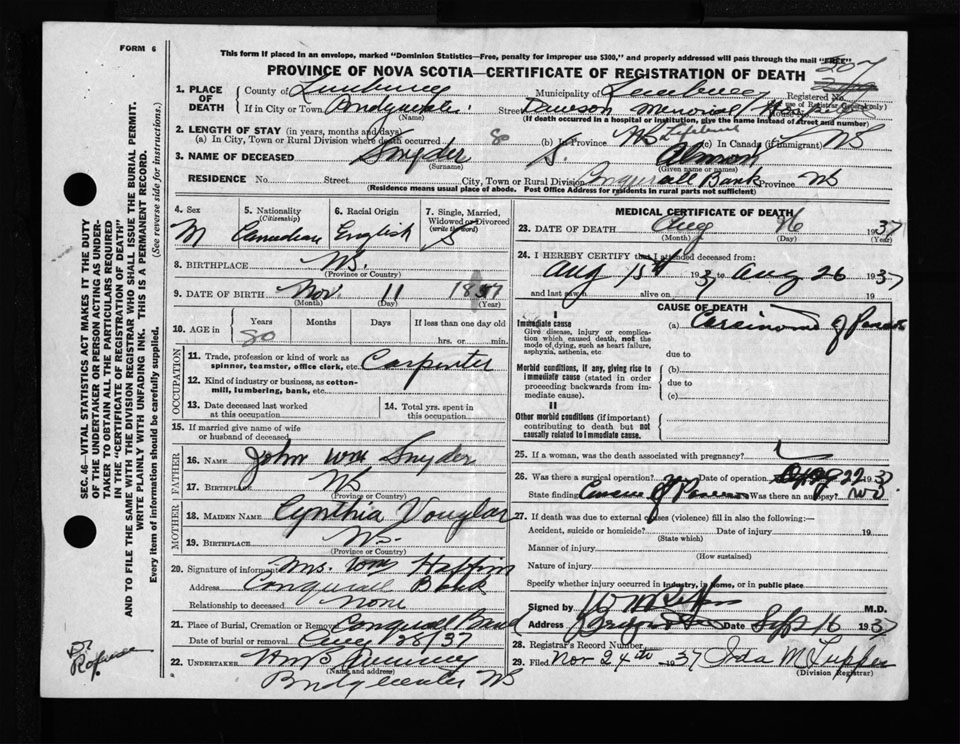 FORM 6
This form if placed in an envelope, marked "Dominion Statistics—Free, penalty for improper use $300," and properly addressed will pass through the mail "FREE"
PROVINCE OF NOVA SCOTIA—CERTIFICATE OF REGISTRATION OF DEATH 207
1. PLACE OF DEATH County of Lunenburg Municipality of Lunenburg Registered No.
(For use of Registrar General only)
If in City or Town Bridgewater Street Dawson Memorial Hospital House No.
(Name) (If death occurred in a hospital or institution, give the name instead of street and number)
2. LENGTH OF STAY (in years, months and days)
(a) In City, Town or Rural Division where death occurred 80 (b) In Province NS Lifetime (c) In Canada (if immigrant) NS
3. NAME OF DECEASED Snyder S. Almon
(Surname) (Given name or names)
RESIDENCE No. Street City, Town or Rural Division Bank Province NS
(Residence means usual place of abode. Post Office Address for residents in rural parts not sufficient)
4. Sex M
5. Nationality (Citizenship) Canadian
6. Racial Origin English
7. Single, Married, Widowed or Divorced (write the word) S
8. BIRTHPLACE NS.
(Province or Country)
9. DATE OF BIRTH Nov. 11 1857
(Month) (Day) (Year)
10. AGE in Years Months Days If less than one day old
80 hrs. or min.
OCCUPATION
11. Trade, profession or kind of work as spinner, teamster, office clerk, etc. Carpenter
12. Kind of industry or business, as cotton-mill, lumbering, bank, etc.
13. Date deceased last worked at this occupation
14. Total yrs. spent in this occupation
15. If married give name of wife or husband of deceased
FATHER
16. NAME John Wm Snyder
17. BIRTHPLACE NS
(Province or Country)
MOTHER
18. MAIDEN NAME Cynthia
19. BIRTHPLACE NS.
(Province or Country)
20. Signature of informant Mrs. Tom
Address Conquerall Bank
Relationship to deceased None
21. Place of Burial, Cremation or Removal Conquerall Bank
Date of burial or removal Aug 28/37
22. UNDERTAKER
(Name and address)
Bridgewater NS
MEDICAL CERTIFICATE OF DEATH
23. DATE OF DEATH Aug 26 1937
(Month) (Day) (Year)
24. I HEREBY CERTIFY that I attended deceased from:
Aug 15th 1937 to Aug 26 1937
and last saw alive on 19
CAUSE OF DEATH
I
Immediate cause
Give disease, injury or complication which caused death, not the mode of dying, such as heart failure, asphyxia, asthenia, etc
(a) Carcinoma of
due to
Morbid conditions, if any, giving rise to immediate cause (stated in order proceeding backwards from immediate cause).
(b)
due to
(c)
II
Other morbid conditions (if important) contributing to death but not causally related to immediate cause.
25. If a woman, was the death associated with pregnancy?
26. Was there a surgical operation? Date of operation 22 1937
State finding Cancer of Was there an autopsy? No
27. If death was due to external causes (violence) fill in also the following:—
Accident, suicide or homicide? Date of injury 19
(State which)
Manner of injury
(How sustained)
Nature of injury
Specify whether injury occurred in Industry, in home, or in public place
Signed by M.D.
Address Date Sept 16 1937
28. Registrar's Record Number
29. Filed Nov 24th 1937 Ida M Tupper
(Division Registrar)
SEC. 46—VITAL STATISTICS ACT MAKES IT THE DUTY
OF THE UNDERTAKER OR PERSON ACTING AS UNDERTAKER TO OBTAIN ALL THE PARTICULARS REQUIRED
IN THE "CERTIFICATE OF REGISTRATION OF DEATH"
AND TO FILE THE SAME WITH THE DIVISION REGISTRAR WHO SHALL ISSUE THE BURIAL PERMIT.
WRITE PLAINLY WITH UNFADING INK. THIS IS A PERMANENT RECORD.
Every item of information should be carefully supplied. (See reverse side for instructions.)
Dr